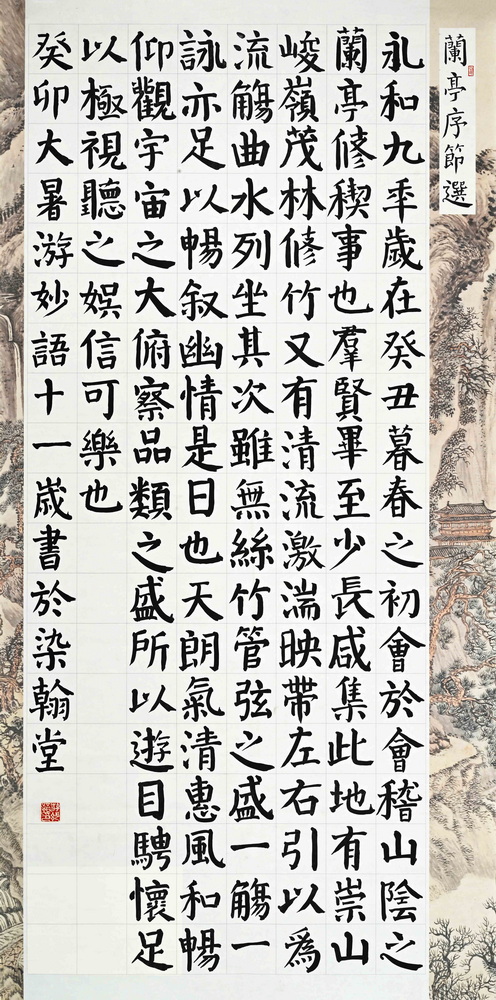 蘭亭序節選
永和九年歲在癸丑暮春之初會於會稽山陰之
蘭亭修稧事也羣賢畢至少長咸集此地有崇山
峻嶺茂林修竹又有清流激湍映帶左右引以爲
流觴曲水列坐其次雖無絲竹管弦之盛一觴一
詠亦足以暢叙幽情是日也天朗氣清惠風和暢
仰觀宇宙之大俯察品類之盛所以遊目騁懷足
以極視聽之娛信可樂也
癸卯大暑游妙語十一歳書於染翰堂